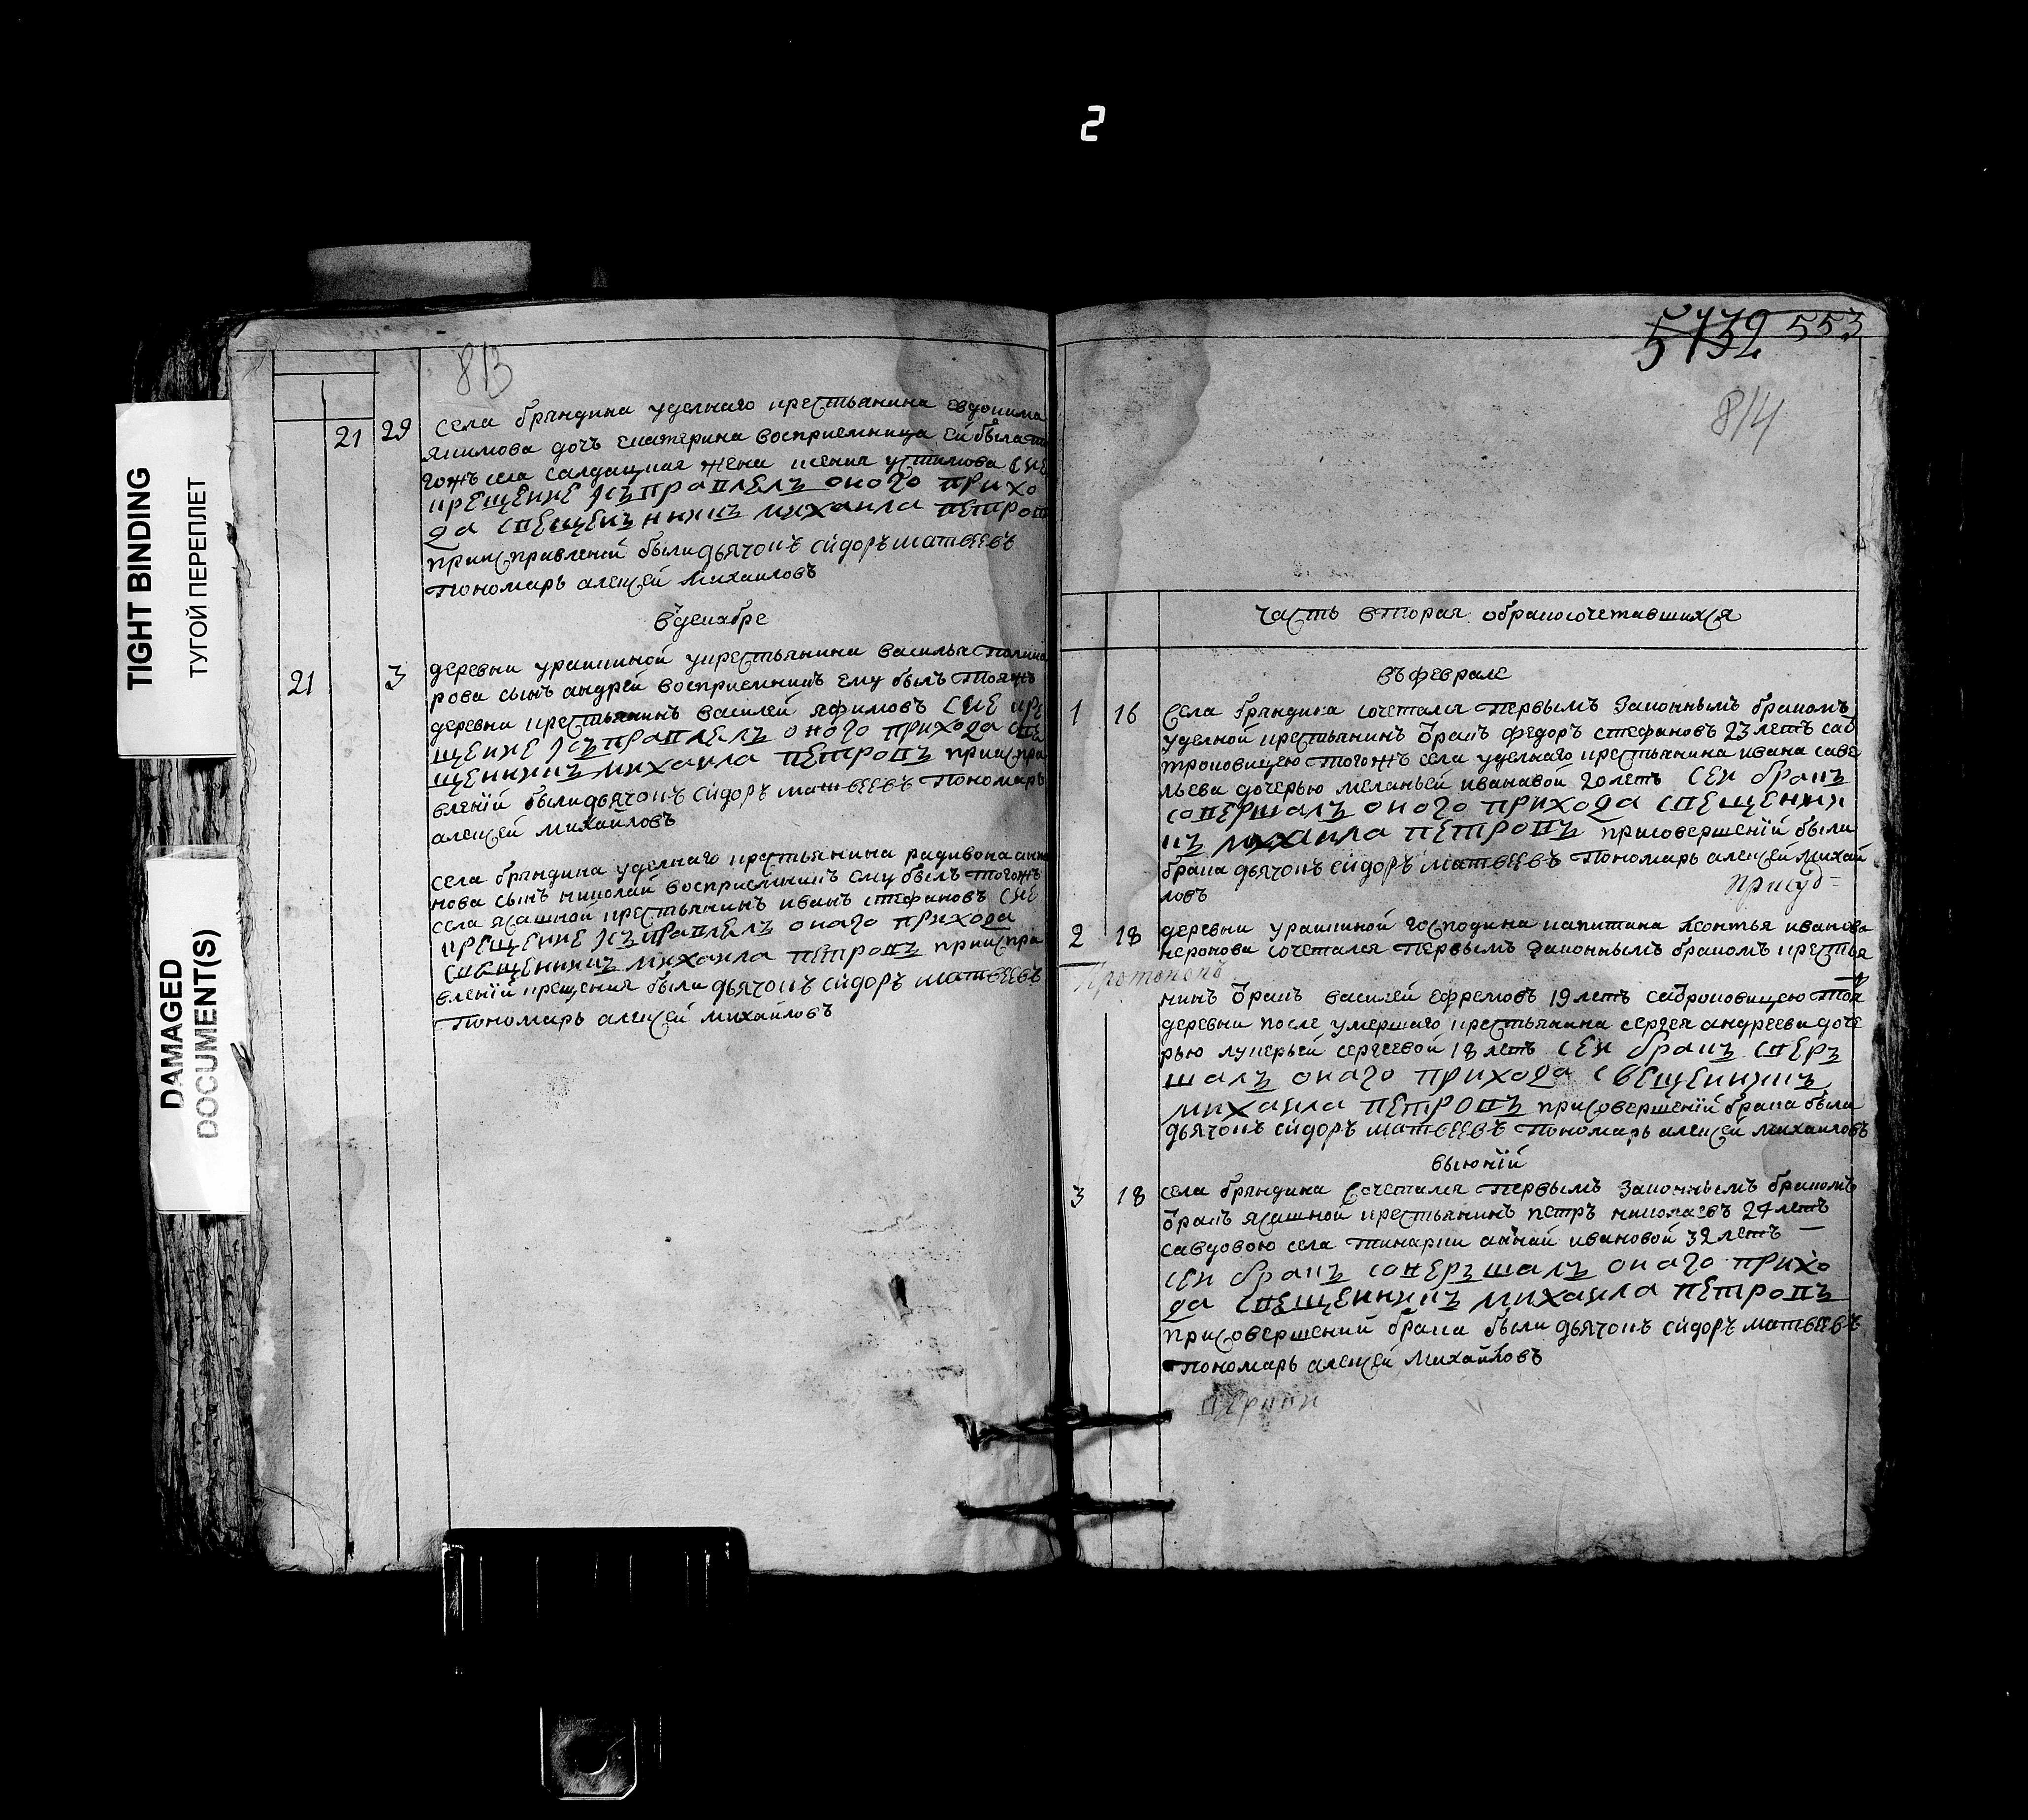 2
TIGHT BINDING
ТУГОЙ ПЕРЕПЛЕТ
DAMAGED
DOCUMENT(S)
813
21 29 села бряндина уделнаго крестьянина евдокима
якимова дочъ екатерина восприемница ей была то
гожъ села салдацкая жена ксения устимова сие
крещение исъправлелъ оного прихо
да свещенъникъ михаила петровъ
приисправлений были дьячокъ сидоръ матвеевъ
пономарь алексей михаиловъ
вдекабре
21 3 деревни урайкиной укрестьянина василья
рова сынъ андрей восприемникъ ему былъ тояжъ
деревни крестьянинъ василей яфимовъ сие кре
щение исъправлелъ оного прихода све
щенникъ михаила петровъ приисправ
влений были дьячокъ сидоръ матвеевъ пономарь
алексей михайловъ
села бряндина уделнаго крестьянина радивона
нова сынъ николай восприемникъ ему былъ тогожъ
села ясашной крестьянинъ иванъ стефановъ сие
крещение исъправлелъ оного прихода
свещенникъ михаила петровъ приисправ
влений крещения были дьячокъ сидоръ матвеевъ
пономарь алексей михайловъ
5732 553
814
часть вторая обракосочетавшихся
въфеврале
1 16 села бряндина сочетался первымъ законнымъ бракомъ
уделной крестьянинъ бракъ федоръ стефановъ 23 летъ саб
роковицею тогожъ села уделнаго крестьянина ивана саве
льева дочерью меланьей ивановой 20 летъ сей бракъ
савершалъ оного прихода свещенни
къ михаила петровъ присовершений были
брака дьячокъ сидоръ матвеевъ пономарь алексей михай
ловъ
2 18 деревни урайкиной господина капитана леонтья иванова
неронова сочетался первымъ законнымъ бракомъ крестья
нинъ бракъ василей ефремовъ 19 летъ саброковицею тоя
деревни после умершаго крестьянина сергея андреева доче
рью лукерьей сергеевой 18 летъ сей бракъ сверъ
шалъ онаго прихода свещенникъ
михаила петровъ присовершений брака были
дьячокъ сидоръ матвеевъ пономарь алексей михаиловъ
выюний
3 18 села бряндина сочетался первымъ законнымъ бракомъ
бракъ ясашной крестьянинъ петръ николаевъ 27 летъ
савдовою села тинарки аннай ивановой 32 летъ
сей бракъ соверъшалъ оного прихо
да свещенникъ михаила петровъ
присовершений брака были дьячокъ сидоръ матвеевъ
пономарь алексей михайловъ